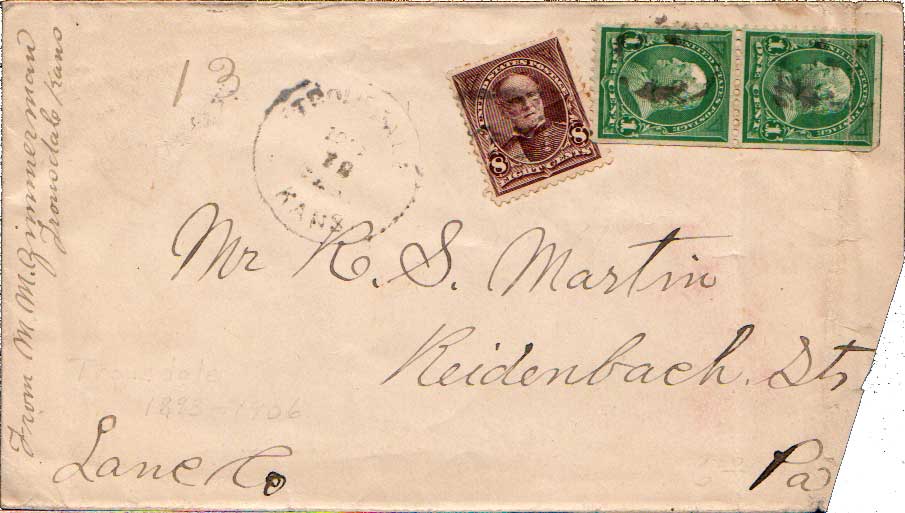 From M. M. Zimmerman
Trousdale Kans
13
KANS
18
UNITED STATES POSTAGE
8 8
EIGHT CENTS
UNITED STATES POSTAGE
1 1
ONE CENT
UNITED STATES POSTAGE
1 1
ONE CENT
Mr R. S. Martin
Reidenbach. Sts
Trousdale
1893-1906
Lanc Co
Pa